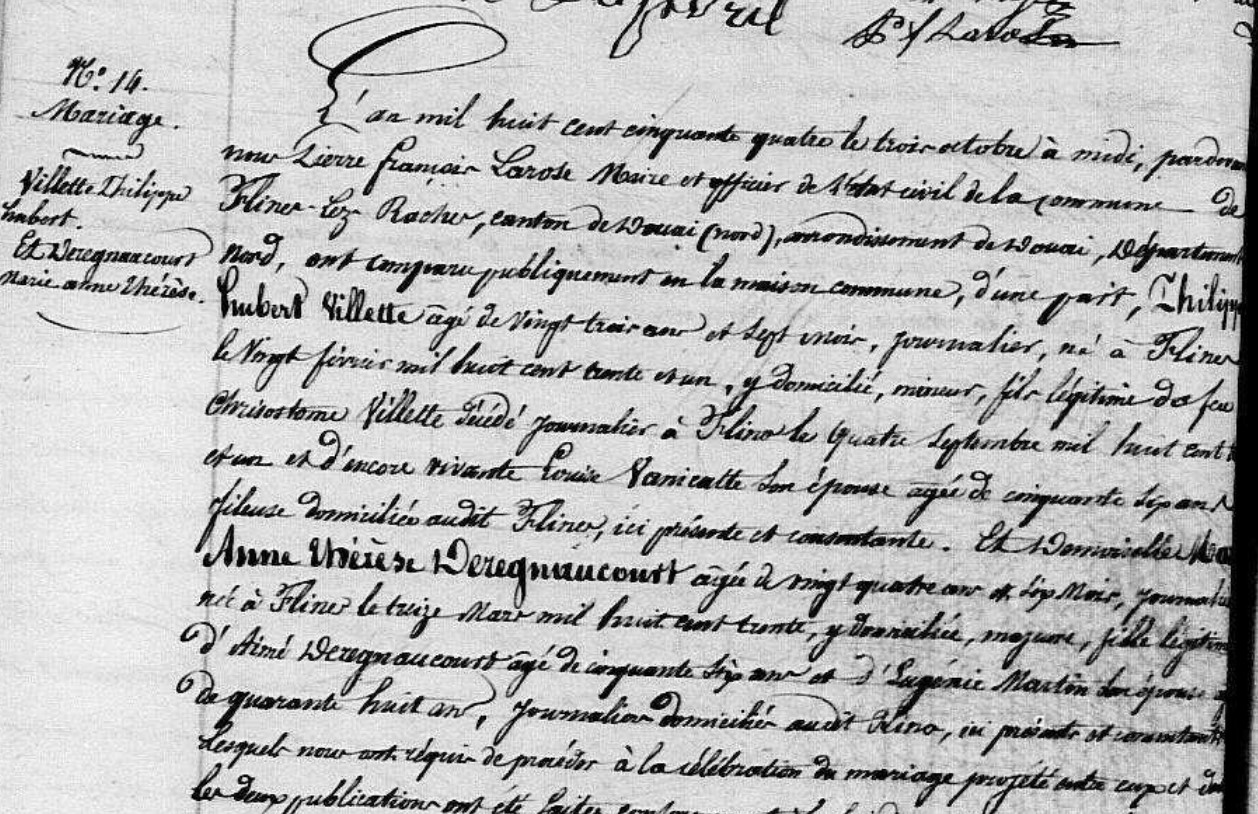 Avril
P. f. Larose
N.° 14.
Mariage.
Villette Philippe
hubert.
Et Deregnaucourt
marie anne thérèse.
L'an mil huit cent cinquante quatre le trois octobre à midi, pardevant
nous Pierre françois Larose Maire et officier de l'état civil de la commune de
Flines-lez-Raches, canton de Douai (nord), arrondissement de Douai, Département
nord, ont comparu publiquement en la maison commune, d'une part, Philippe
hubert Villette âgé de vingt trois ans et sept mois, journalier, né à Flines
le Vingt février mil huit cent trente et un, y domicilié, mineur, fils légitime de feu
Chrisostome Villette décédé journalier à Flines le quatre Septembre mil huit cent
et un et d'encore vivante Louise Vanicatte son épouse agée de cinquante six ans
fileuse domiciliée audit Flines, ici présente et consentante. Et Demoiselle Ma
Anne thérèse Deregnaucourt âgée de vingt quatre ans et six Mois, journali
née à Flines le treize Mars mil huit cent trente, y domiciliée, majeure, fille légitime
d'Aimé Deregnaucourt âgé de cinquante six ans et d'Eugénie Martin son épouse
de quarante huit ans, journaliers domiciliés audit Flines, ici présents et consentants
Lesquels nous ont réquis de procéder à la célébration du mariage projeté entre eux et
les deux publications ont été faites